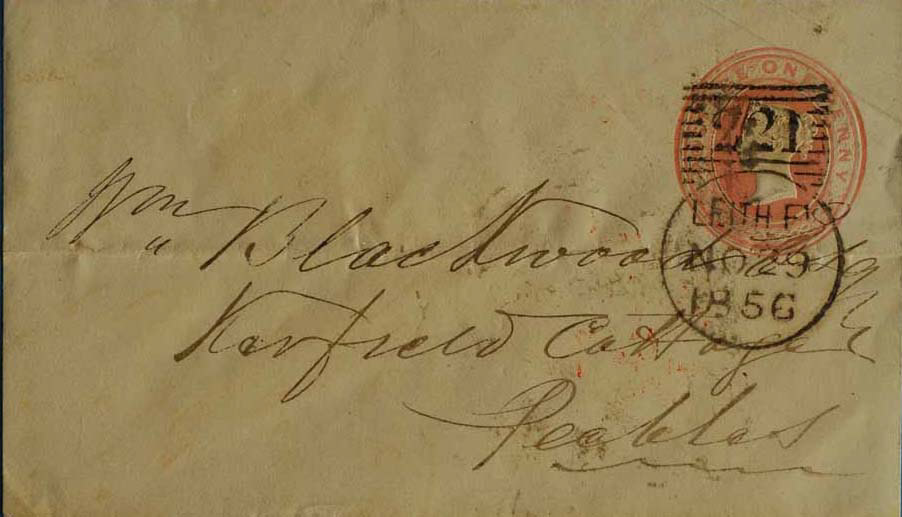 ONE PENNY
221
LEITH
NO 29
1856
Wm Blackwood Esqr
Kerfield Cottage
Peebles